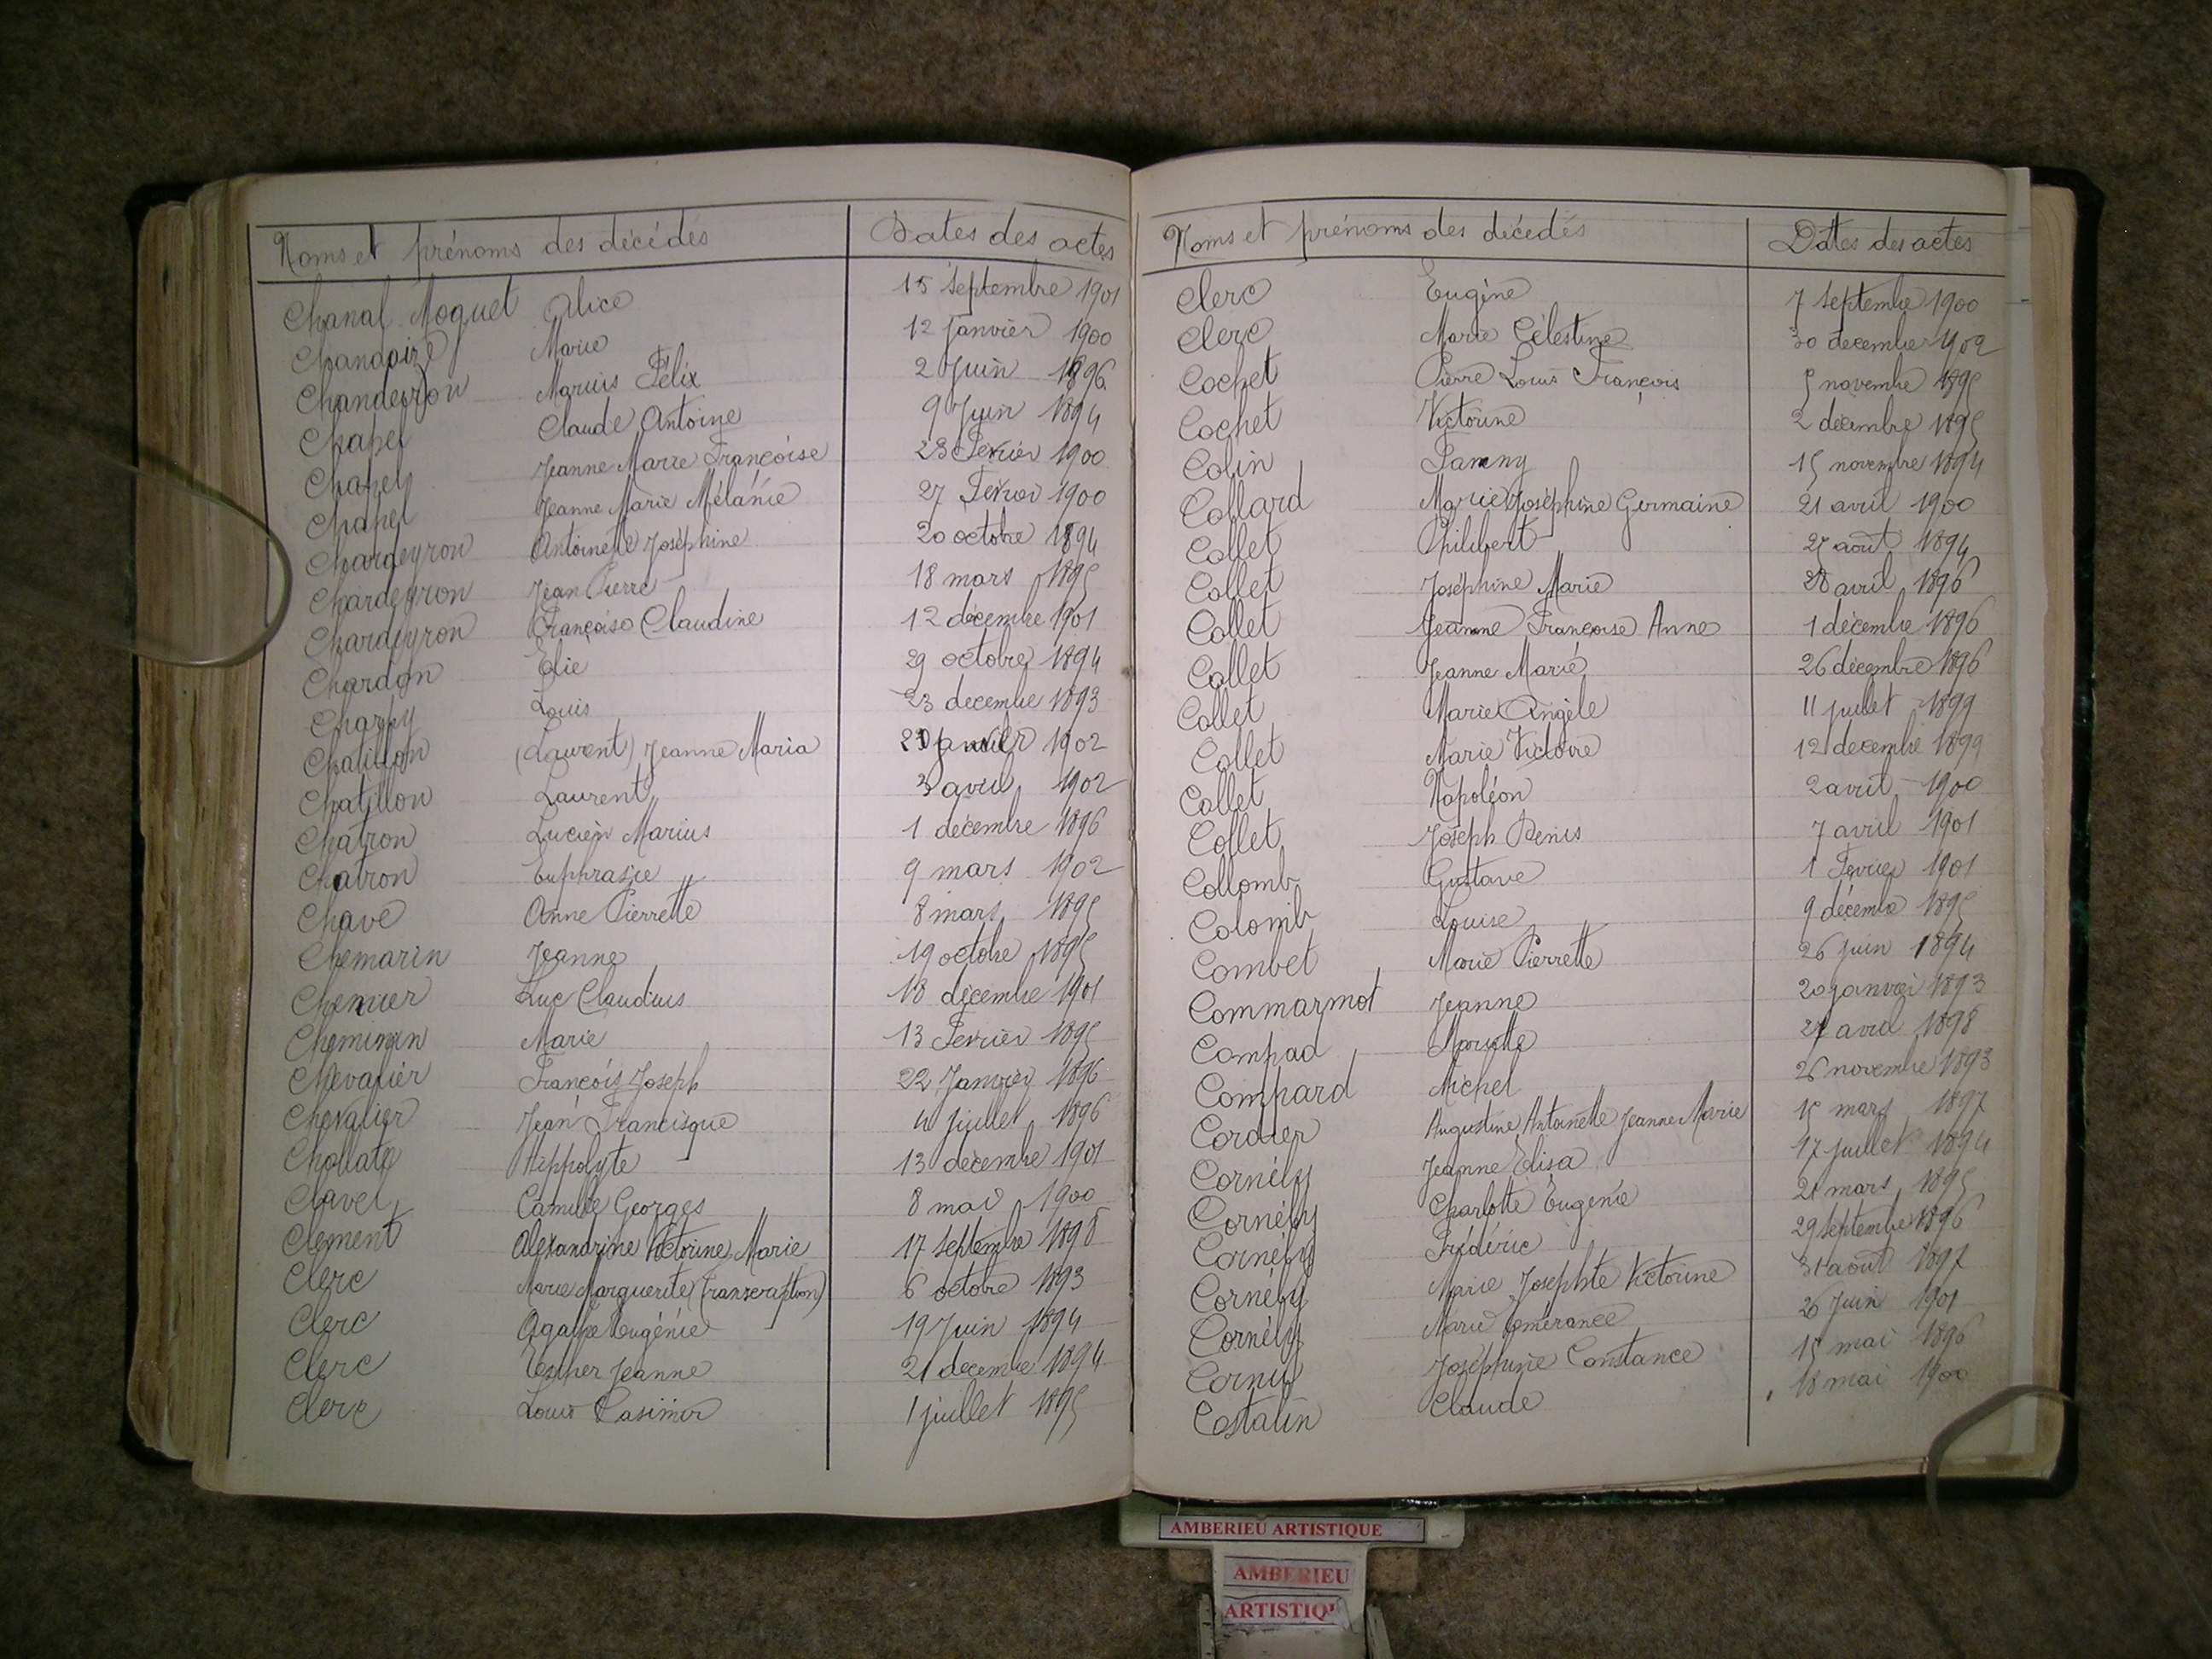 Noms et prénoms des décédés Dates des actes
Chanal Moquet Alice 15 septembre 1901
Marie 12 Janvier 1900
Chandeyron Marius Félix 2 Juin 1896
Chapel Claude Antoine 9 Juin 1894
Chapel Jeanne Marie Françoise 23 Février 1900
Chapel Jeanne Marie Mélanie 27 Février 1900
Chardeyron Antoinette Joséphine 20 octobre 1894
Chardeyron Jean Pierre 18 mars 1895
Chardeyron Françoise Claudine 12 décembre 1901
Chardon Elie 29 octobre 1894
Charpy Louis 23 décembre 1893
Chatillon (Laurent) Jeanne Maria janvier 1902
Chatillon Laurent 3 avril 1902
Chatron Lucien Marius 1 décembre 1896
Chatron Euphrasie 9 mars 1902
Chave Anne Pierrette 8 mars 1895
Chemarin Jeanne 19 octobre 1895
Luc Claudius 18 décembre 1901
Marie 13 Février 1895
Chevalier François Joseph 22 Janvier 1896
Chevalier Jean Francisque 4 juillet 1896
Chollate Hippolyte 13 décembre 1901
Clavel Camille Georges 8 mai 1900
Clement Alexandrine Victorine Marie 17 septembre 1898
Clerc Marie Marguerite (transcription) 6 octobre 1893
Clerc Agathe Eugénie 19 Juin 1894
Clerc Esther Jeanne 21 décembre 1894
Clerc Louis Casimir 1 juillet 1895
Noms et prénoms des décédés Dates des actes
Clerc Eugène 7 septembre 1900
Clerc Marie Célestine 30 décembre 1902
Cochet Pierre Louis François 5 novembre 1895
Cochet Victorine 2 décembre 1895
Colin Fanny 15 novembre 1894
Collard Marie Joséphine Germaine 21 avril 1900
Collet Philibert août 1894
Collet Joséphine Marie 28 avril 1896
Collet Jeanne Françoise Anne 1 décembre 1896
Collet Jeanne Marie 26 décembre 1896
Collet Marie Angèle 11 juillet 1899
Collet Marie Victoire 12 décembre 1899
Collet Napoléon 2 avril 1900
Collet Joseph Denis 7 avril 1901
Collomb Gustave 1 Février 1901
Colomb Louise 9 décembre 1895
Combet Marie Pierrette 26 juin 1894
Commarmot Jeanne 20 janvier 1893
Compad Mariette avril 1898
Compard Michel 26 novembre 1893
Cordier Augustine Antoinette Jeanne Marie 15 mars 1897
Cornély Jeanne Elisa 17 juillet 1894
Cornély Charlotte Eugénie 21 mars 1895
Cornély Frédéric 29 septembre 1896
Cornély Marie Josephte Victorine 31 août 1897
Cornély Marie Emérance 26 Juin 1901
Cornu Joséphine Constance 15 mai 1896
Costalin Claude 18 mai 1900
AMBERIEU ARTISTIQUE
AMBERIEU
ARTISTIQU